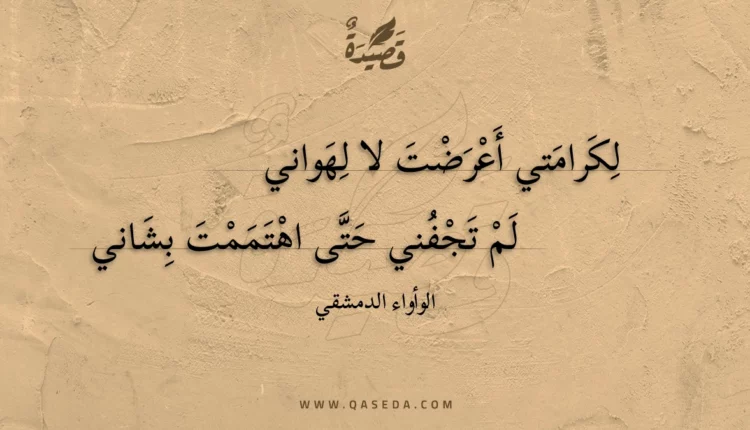 قَصِيدَةٌ
لِكَرامَتي أَعْرَضْتَ لا لِهَواني
لَمْ تَجْفُني حَتَّى اهْتَمَمْتَ بِشَاني
الوأواء الدمشقي
WWW.QASEDA.COM